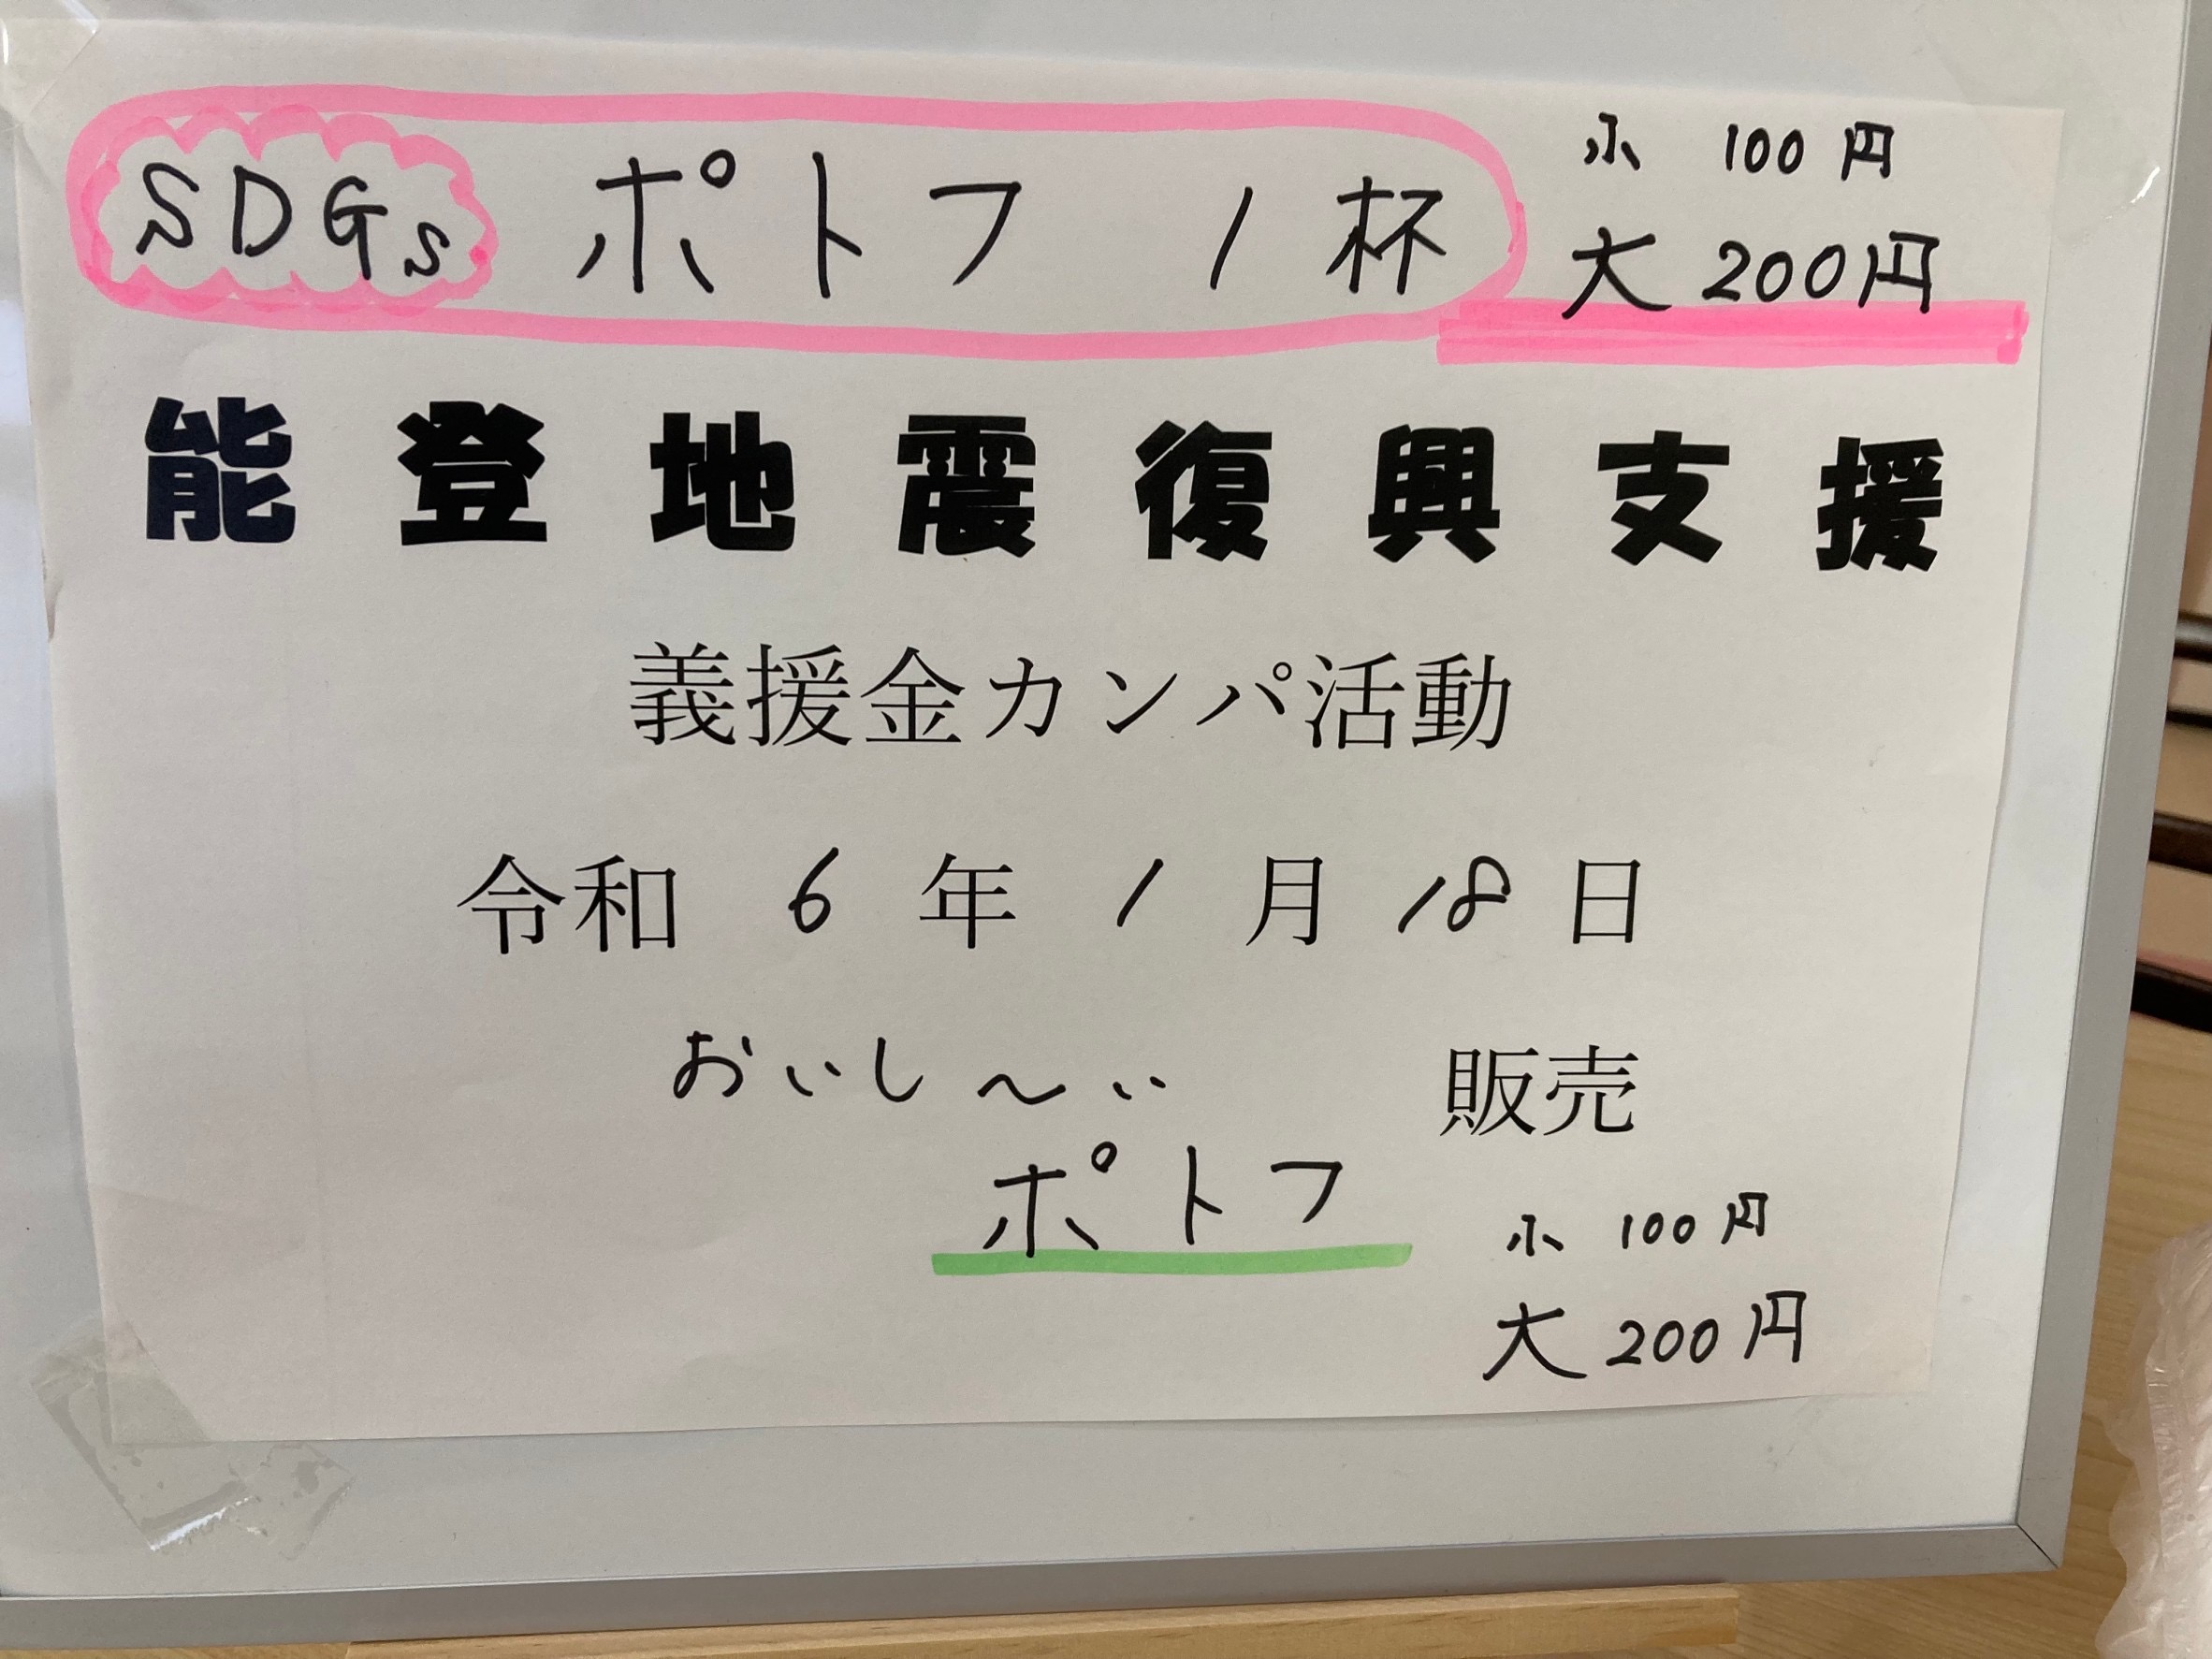 SDGs ポトフ 1杯 小 100円
大 200円
能登地震復興支援
義援金カンパ活動
令和 6 年 1 月 18 日
おいし～い 販売
ポトフ
小 100円
大 200円